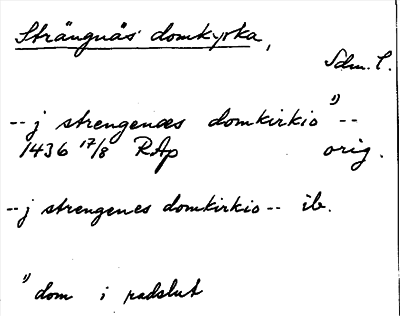 Strängnäs domkyrka,
Sdm. l.
-- j strengenæs domkirkio 1) --
1436 17/8 RAp orig.
-- j strengenes domkirkio -- ib.
1) dom i radslut